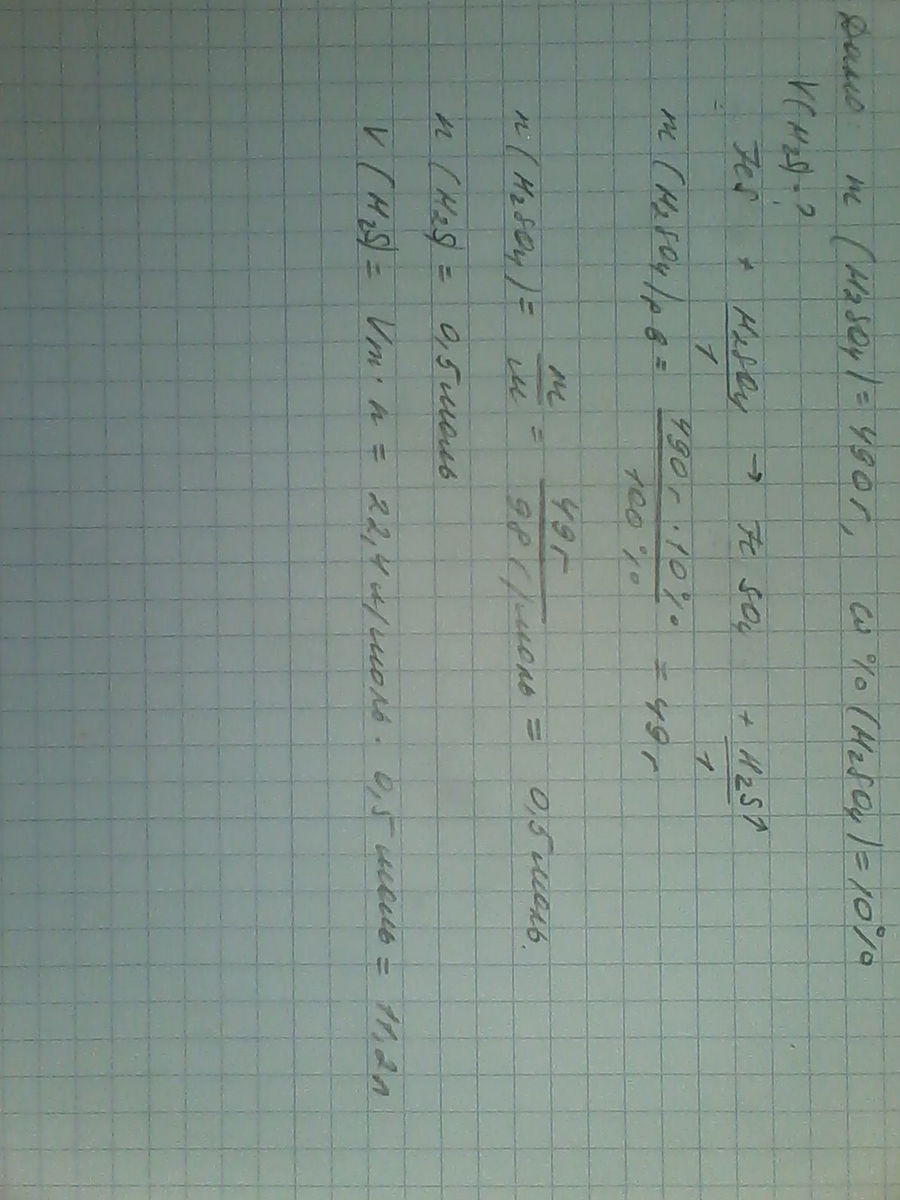 Дано: m (H₂SO₄) = 490 г, ω% (H₂SO₄) = 10%
V(H₂S) = ?
FeS + H₂SO₄ → FeSO₄ + H₂S↑
1 1
m (H₂SO₄) р.в = 490 г · 10% / 100% = 49 г
n (H₂SO₄) = m / M = 49 г / 98 г/моль = 0,5 моль.
n (H₂S) = 0,5 моль
V (H₂S) = Vm · n = 22,4 л/моль · 0,5 моль = 11,2 л